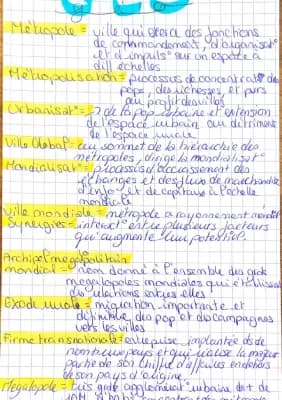 GEO
Métropole = ville qui exerce des fonctions
de commandement, d'organisat°
et d'impuls° sur un espace à
diff échelles
Métropolisation = processus de concentrat° des
pops, des richesses, et pvrs
au profit des villes
Urbanisat° = ↗ de la pop urbaine et extension
de l'espace urbain au détriment
de l'espace rurale
Ville Global = au sommet de la hiérarchie des
métropoles, dirige la mondialisat°
Mondialisat° = processus d'accroissement des
échanges et des flux de marchandise
d'info et de capitaux à l'échelle
mondiale
Ville mondiale = métropole a rayonnement mondial
Synergies = interact° entre plusieurs facteurs
qui augmente leur potentiel.
Archipel mégapolitain
mondial = nom donné à l'ensemble des gdes
megalopoles mondiales qui
relations entres elles
Exode rurale = migration importante et
définitive des pop des campagnes
vers les villes
Firme transnationale = entreprise implantée ds de
nombreux pays et qui réalise la majeur
partie de son chiffre d'affaires en dehors
de son pays d'origine.
Megalopole = très grde agglomérat° urbaine de + de